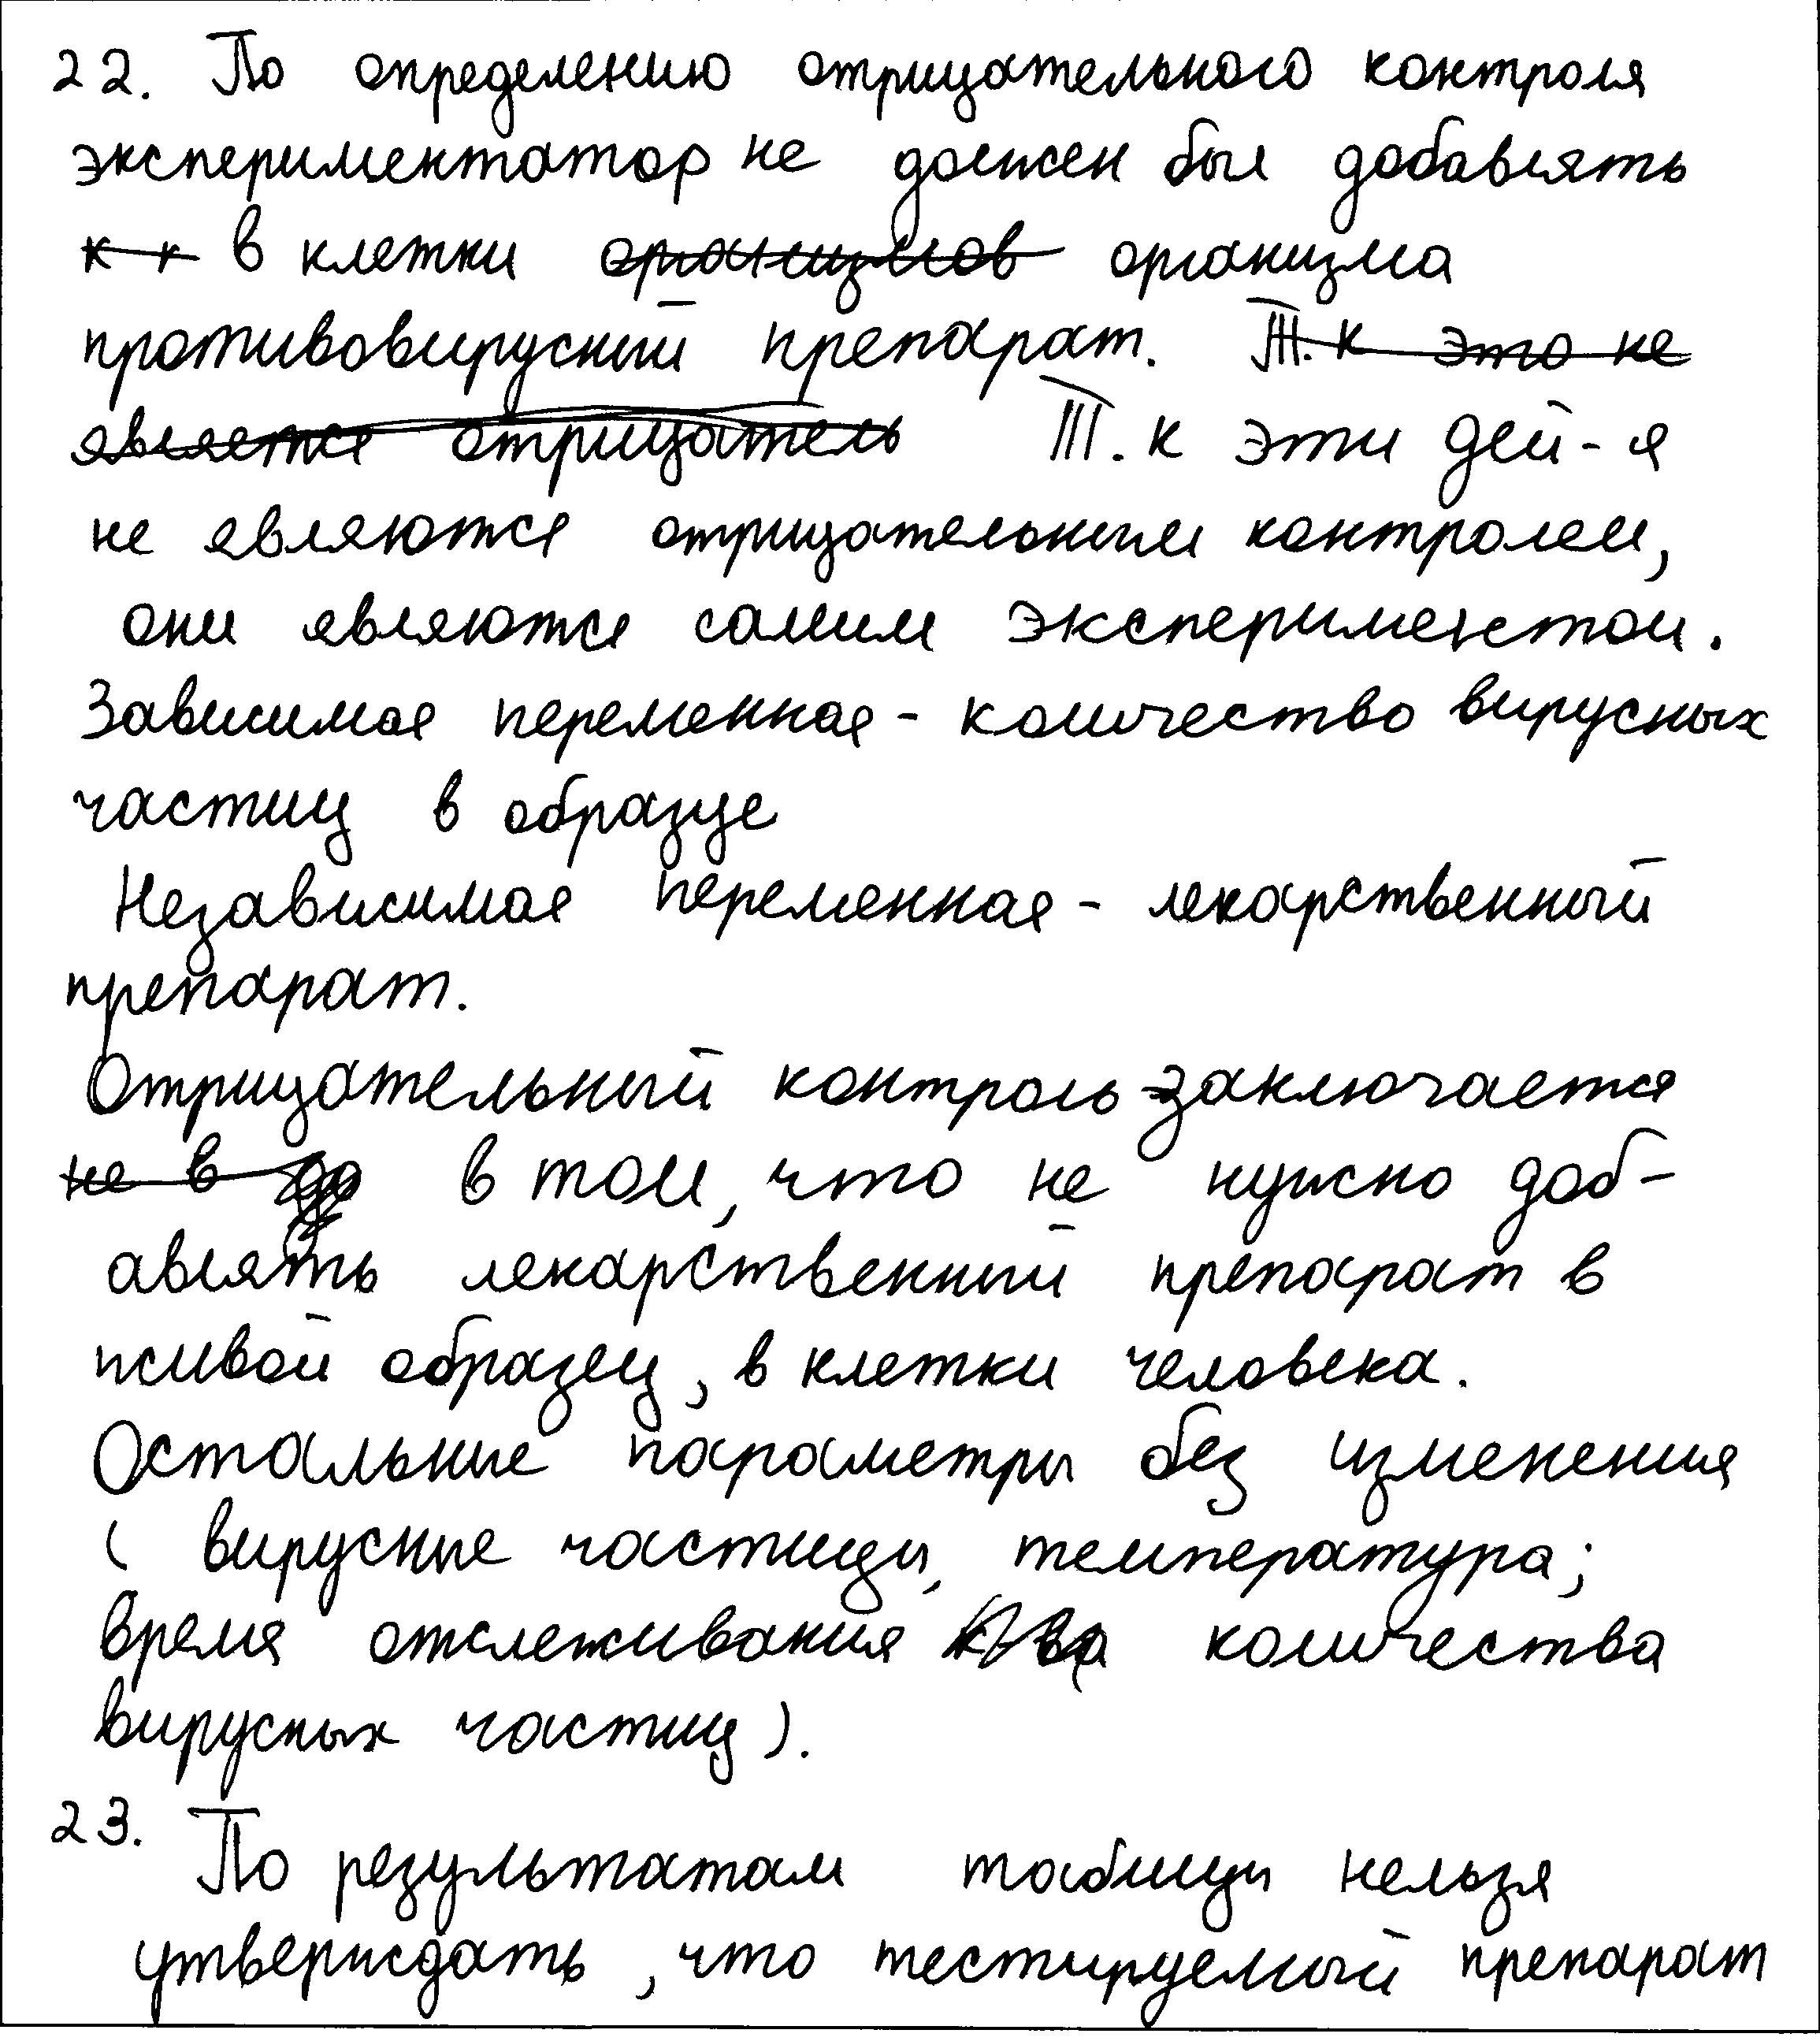 22. По определению отрицательного контроля
экспериментатор не должен был добавлять
к к в клетки организмов организма
противовирусный препарат. Т.к это не
является отрицатель Т.к эти дей-я
не являются отрицательным контролем,
они являются самим экспериментом.
Зависимая переменная - количество вирусных
частиц в образце
Независимая переменная - лекарственный
препарат.
Отрицательный контроль заключается
не в до в том, что не нужно доб-
авлять лекарственный препарат в
живой образец, в клетки человека.
Остальные параметры без изменения
( вирусные частицы, температура;
время отслеживания к-ва количества
вирусных частиц).
23. По результатам таблицы нельзя
утверждать, что тестируемый препарат